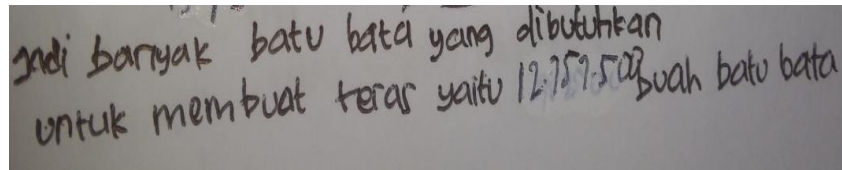 Jadi banyak batu bata yang dibutuhkan
untuk membuat teras yaitu buah batu bata